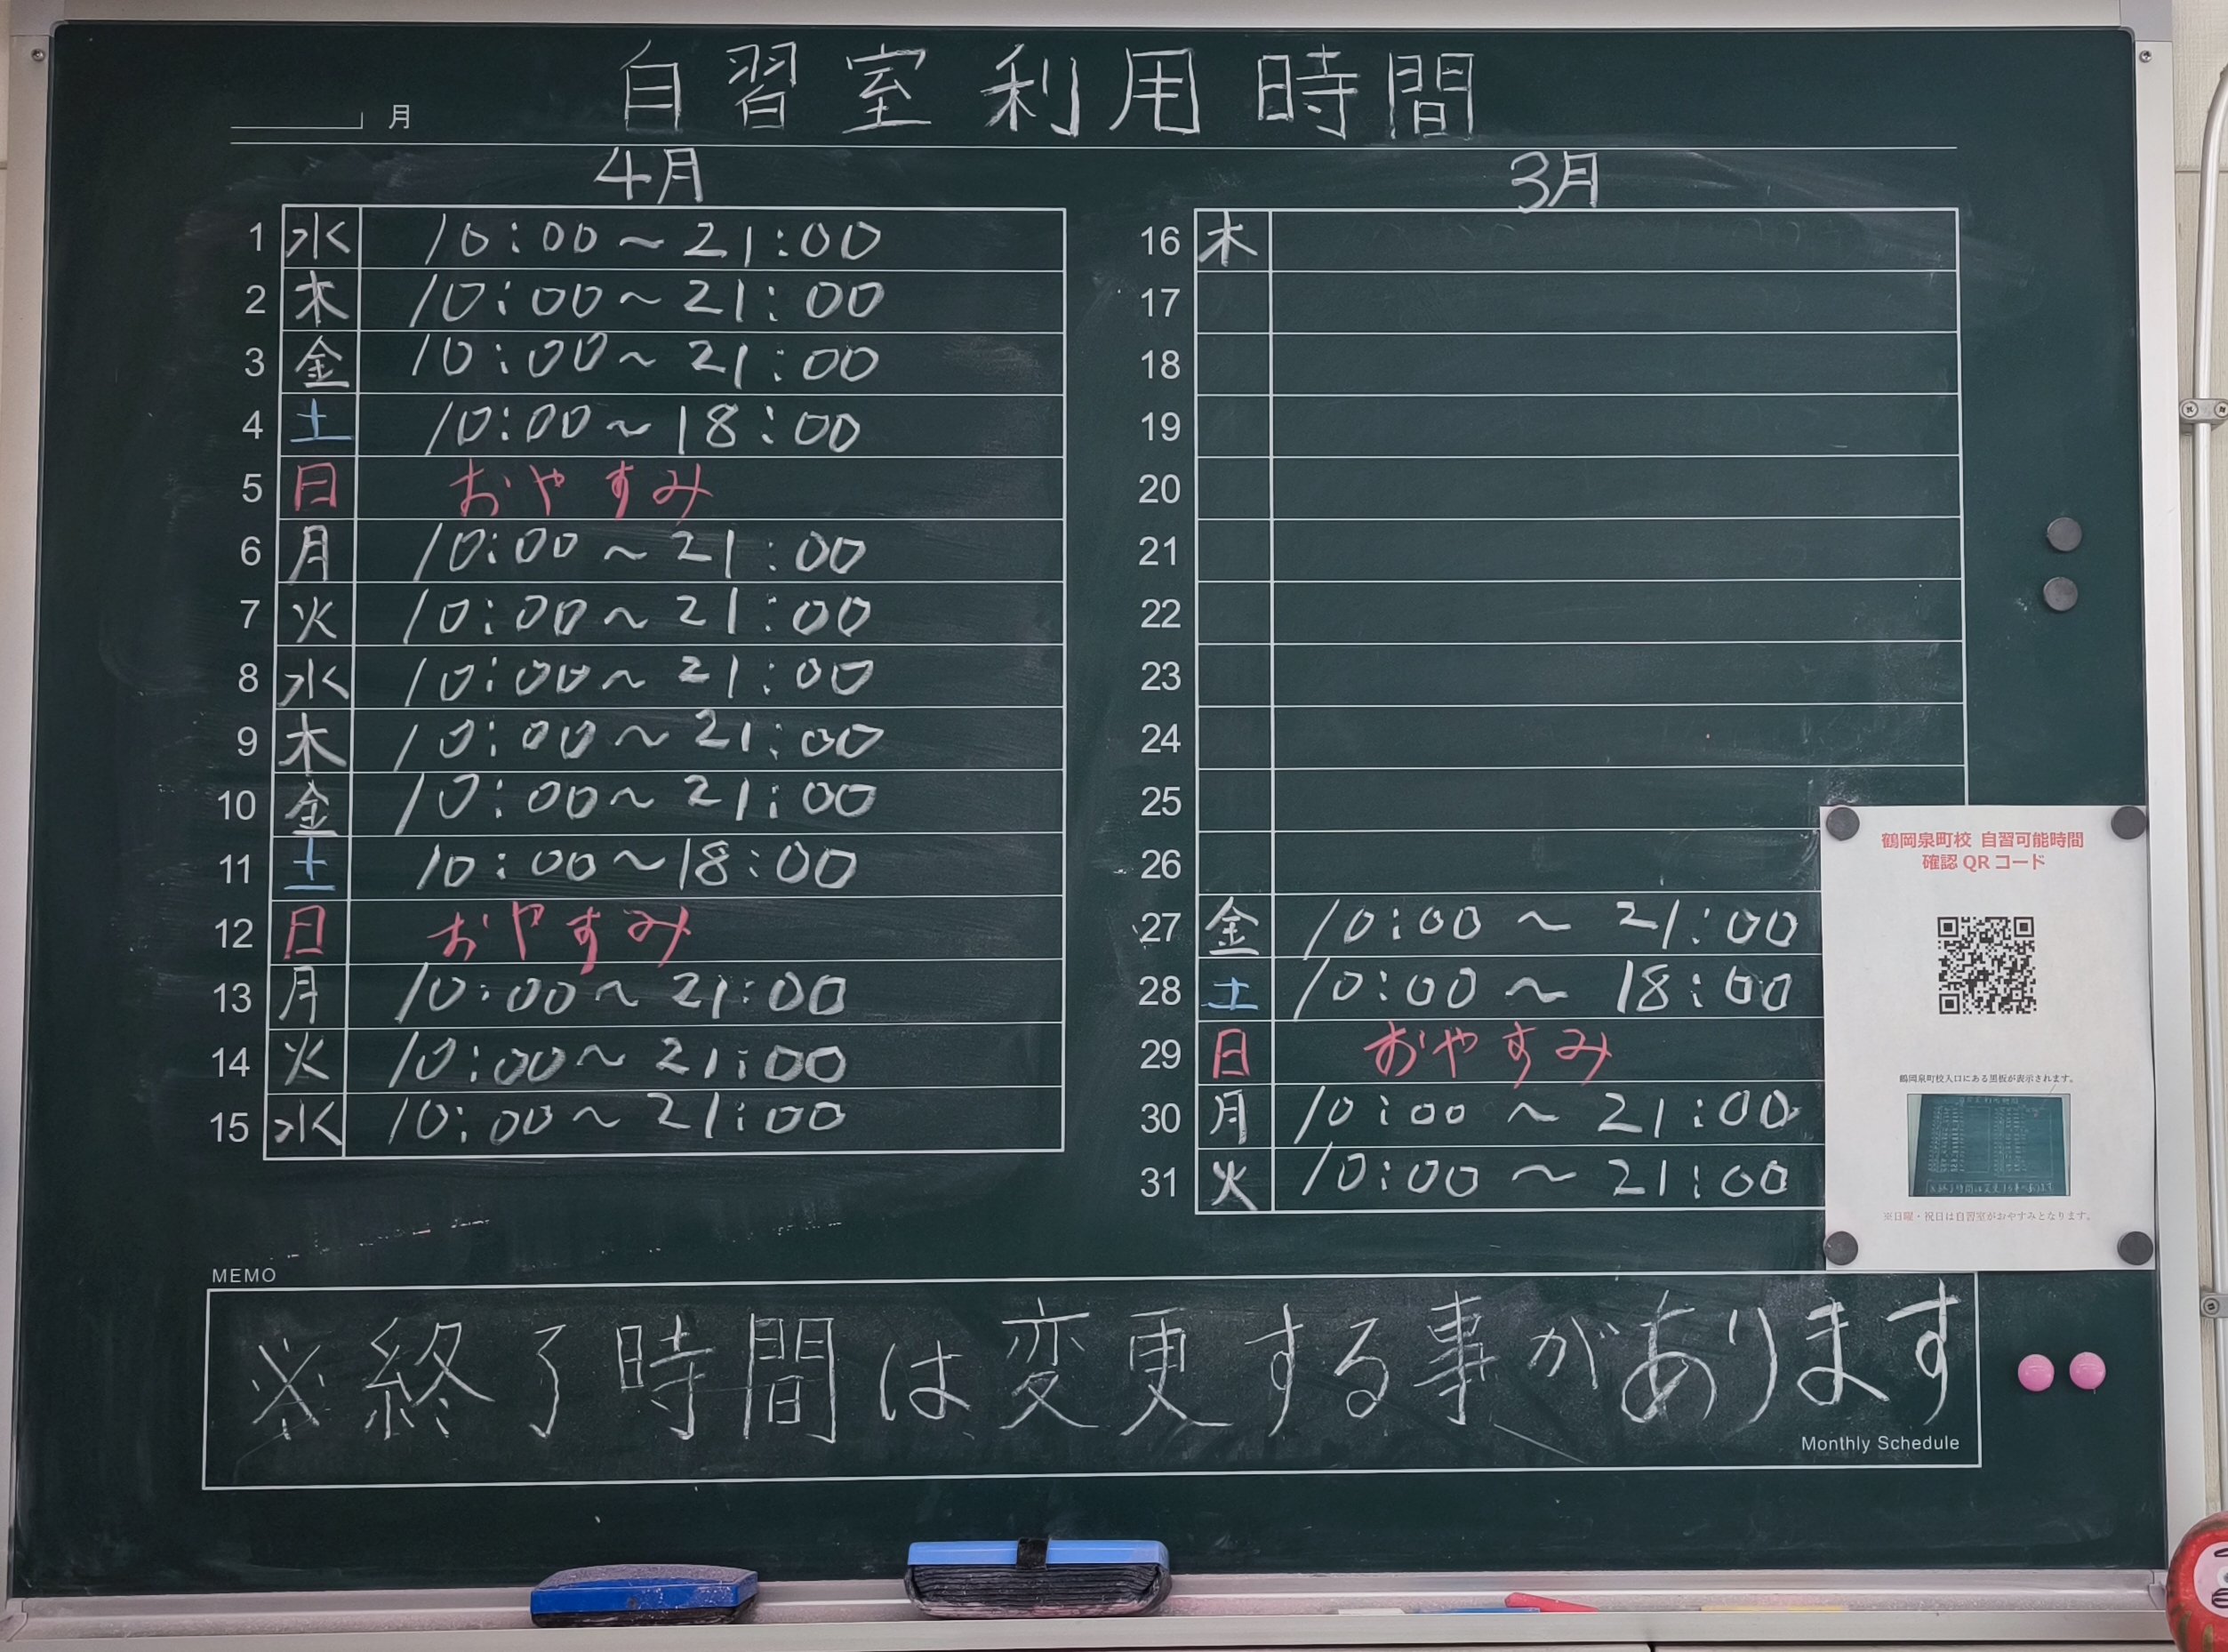 自習室利用時間
月
4月
1 水 10:00～21:00
2 木 10:00～21:00
3 金 10:00～21:00
4 土 10:00～18:00
5 日 おやすみ
6 月 10:00～21:00
7 火 10:00～21:00
8 水 10:00～21:00
9 木 10:00～21:00
10 金 10:00～21:00
11 土 10:00～18:00
12 日 おやすみ
13 月 10:00～21:00
14 火 10:00～21:00
15 水 10:00～21:00
3月
16 木
17
18
19
20
21
22
23
24
25
26
27 金 10:00～21:00
28 土 10:00～18:00
29 日 おやすみ
30 月 10:00～21:00
31 火 10:00～21:00
鶴岡泉町校 自習可能時間
確認QRコード
鶴岡泉町校入口にある黒板が表示されます。
※日曜・祝日は自習室がおやすみとなります。
MEMO
※終了時間は変更する事があります
Monthly Schedule